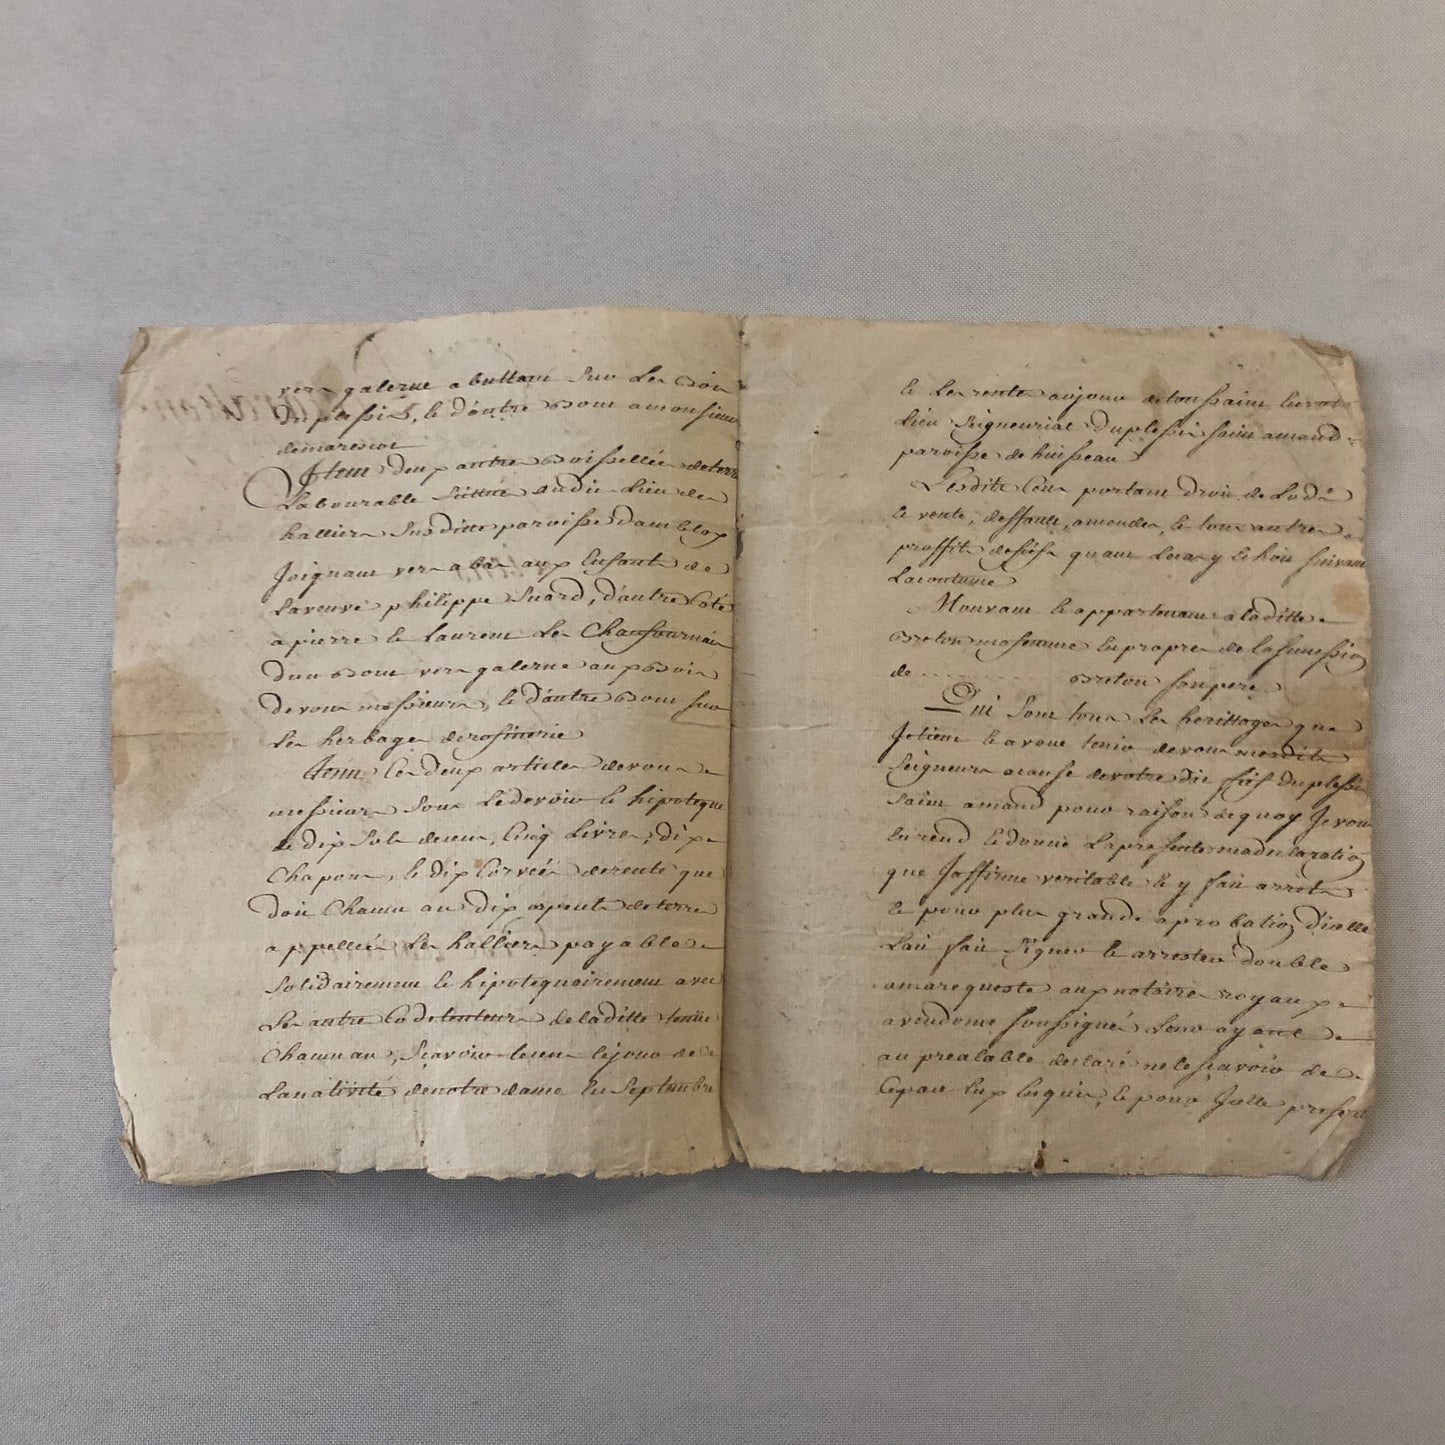 vers galerne abuttant sur les bois
Duplessis, et d'autre bout a monsieur
demarescot
Item deux autre boissellées deterre
Labourable scittuée audit Lieu des
halliers susditte paroisse damblox
Joignant vers abas aux Enfants de
La veuve philippe Suard, d'autre Coté
a pierre et Laurent Les Chaufournais
Dun bout vers galerne aux bois
De vous messieurs, et d'autre bout sur
Les herbages
Tenu les deux articles de vous
messieurs sous Ledevoir et hipoteque
de dix sols de cens, Cinq Livres, dix
Chapons, et dix Corvées de rente que
doit Chacun an dix arpents de terre
appellées Les halliers payables
solidairement et hipotequairement avec
Les autres Codetenteurs de laditte tenüe
Chacun an, Sçavoir lecens lejour de
Lanativité denotre dame En Septembre
et Les rentes aujour de toussaint
Lieu Seigneurial Duplessis saint amand
paroisse de huisseau
Lesdits Cens portant droit de Lods
et vente, deffauts, amendes, et tous autres
proffits de fiefs quant Lecas y Echoit suivant
Lacoutume
Mouvant et appartenant a laditte
breton masemme En propre de la sucession
de . . . . . . . breton son pere
Qui sont tous Les heritages que
Je tiens et avoue tenir de vous mesdits
Seigneurs a cause de votre dit fief duplessis
Saint amand pour raison dequoy Je vous
En rend et donne La presente ma declaration
que Jaffirme veritable Et y fait arret
et pour plus grande aprobation d'icelle
Lait fait signer et arrester double
a ma requeste aux notaires royaux
a vendome soussignés Pour ayant
au prealable declaré ne le sçavoir de
Ce par Eux Enquis, et pour Jcelle